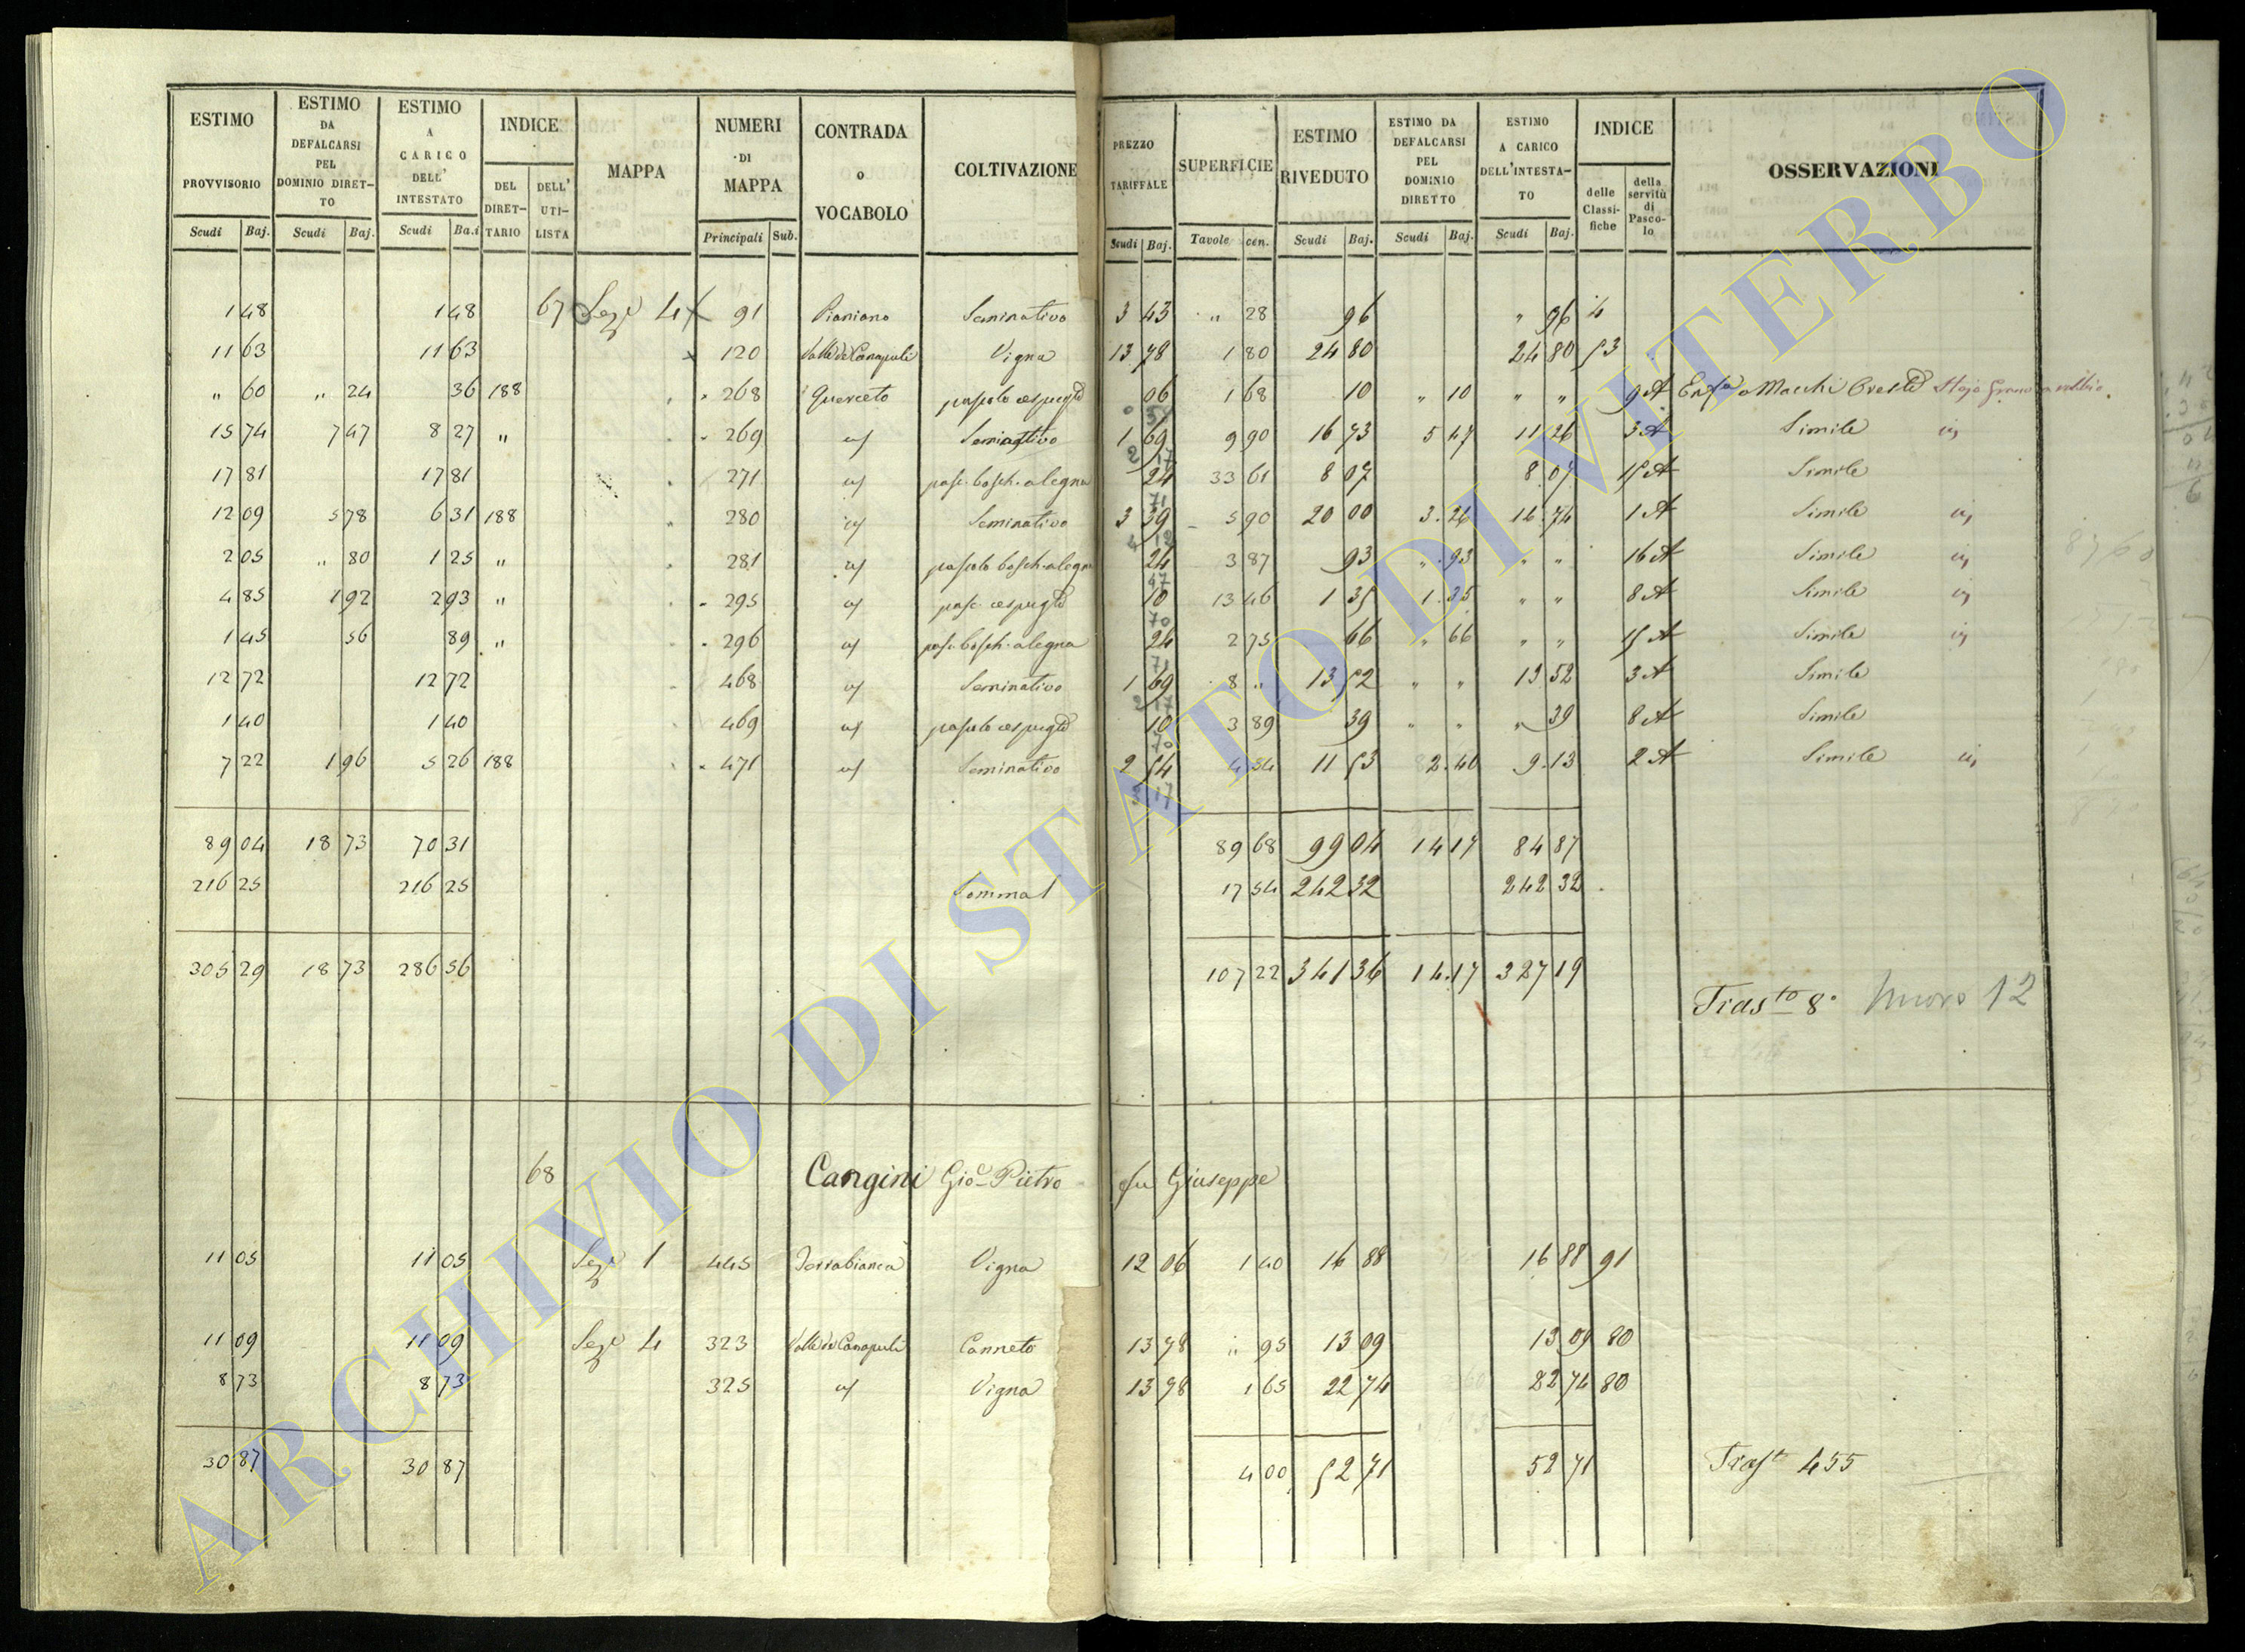 ESTIMO PROVVISORIO | ESTIMO DA DEFALCARSI PEL DOMINIO DIRETTO | ESTIMO A CARICO DELL' INTESTATO | INDICE | MAPPA | NUMERI DI MAPPA | CONTRADA o VOCABOLO | COLTIVAZIONE | PREZZO TARIFFALE | SUPERFICIE | ESTIMO RIVEDUTO | ESTIMO DA DEFALCARSI PEL DOMINIO DIRETTO | ESTIMO A CARICO DELL'INTESTATO | INDICE | OSSERVAZIONI
DEL DIRETTARIO | DELL' UTILISTA | delle Classifiche | della servitù di Pascolo
Scudi Baj. | Scudi Baj. | Scudi Ba.i | Principali Sub. | Scudi Baj. | Tavole cen. | Scudi Baj. | Scudi Baj. | Scudi Baj.
1 48 | 1 48 | 67 | Sezе 4 | 91 | Pianiano | Seminativo | 3 43 | " 28 | 96 | " 96 | 4
11 63 | 11 63 | 120 | Valle di Canapule | Vigna | 13 78 | 1 80 | 24 80 | 24 80 | 53
" 60 | " 24 | 36 | 188 | 268 | Querceto | pascolo cespugto | 06 | 1 68 | 10 | " 10 | " " | 9 A | Macchi Oreste
15 74 | 7 47 | 8 27 | " | 269 | Seminativo | 1 69 | 9 90 | 16 73 | 5 47 | 11 26 | 3 A | Simile
17 81 | 17 81 | 271 | pasc. bosch. a legna | 24 | 33 61 | 8 07 | 8 07 | 15 A | Simile
12 09 | 5 78 | 6 31 | 188 | 280 | Seminativo | 3 39 | 5 90 | 20 00 | 3.26 | 16 74 | 1 A | Simile
2 05 | " 80 | 1 25 | " | 281 | pascolo bosch. a legna | 24 | 3 87 | 93 | " 93 | " " | 16 A | Simile
4 85 | 1 92 | 2 93 | " | 295 | pasc. cespugto | 10 | 13 46 | 1 35 | 1.35 | " " | 8 A | Simile
1 45 | 56 | 89 | " | 296 | pasc. bosch. a legna | 24 | 2 75 | 66 | " 66 | " " | 15 A | Simile
12 72 | 12 72 | 468 | Seminativo | 1 69 | 8 " | 13 52 | " " | 13 52 | 3 A | Simile
1 40 | 1 40 | 469 | pascolo cespugto | 10 | 3 89 | 39 | " " | " 39 | 8 A | Simile
7 22 | 1 96 | 5 26 | 188 | 471 | Seminativo | 2 54 | 4 54 | 11 53 | 2.40 | 9.13 | 2 A | Simile
89 04 | 18 73 | 70 31 | 89 68 | 99 04 | 14 17 | 84 87
216 25 | 216 25 | Somma | 17 54 | 242 32 | 242 32
305 29 | 18 73 | 286 56 | 107 22 | 341 36 | 14.17 | 327 19
Trasto 8° Nuovo 12
68 Cangini Gioe Pietro fu Giuseppe
11 05 | 11 05 | Seze 1 | 445 | Terrabianca | Vigna | 12 06 | 1 40 | 16 88 | 16 88 | 91
11 09 | 11 09 | Seze 4 | 323 | Valle di Canapule | Canneto | 13 78 | " 95 | 13 09 | 13 09 | 80
8 73 | 8 73 | 325 | Vigna | 13 78 | 1 65 | 22 74 | 22 74 | 80
30 87 | 30 87 | 4 00 | 52 71 | 52 71 | Trast 455
ARCHIVIO DI STATO DI VITERBO